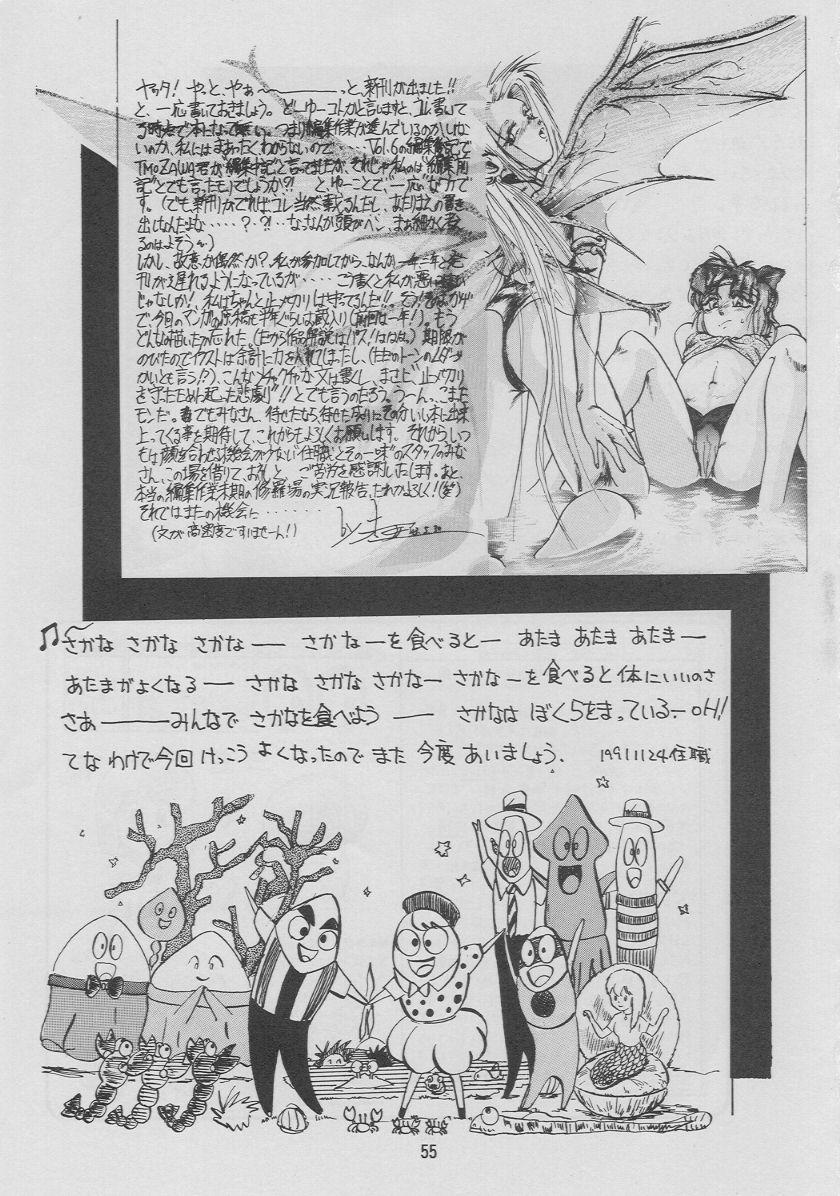 ヤッタ! やっと、やぁ〜――っと、新刊が出ました!!
と、一応書いておきましょう。どーゆーコトかと言いますと、コレ書いて
る時点で本になって無い。つまり編集作業が進んでいるのかいない
のか、私にはまぁったくわからないので・・・・・、Vol.6の編集後記で
TMOZAWA君が編集中記と言ってましたが、それじゃ私のは"編集前
記"とでも言ったモノでしょうか?! とゆーことで、一応、なワケで
す。(でも新刊がでれば、コレ当然載るんだし、あたりまえの書き
出しなんだよな・・・・・?・?!・なっなんか頭がヘン、まぁ細かく考え
るのはよそうっと)
しかし、故意か偶然か?、私が参加してから、なんか一年二年と発
刊が遅れるようになっているが・・・・・こう書くと私が悪い
じゃなしか!、私はちゃんと止メ切りは守ってるんだ!!
で、今回のマンガの原稿も半年ぐらいは蔵入り(前回は一年!)。もう
どんなの描いたか忘れた、(だから作品解説はパス!ははは)期限が
のびたのでイラストは余計に力を入れてしまったし、
かいとも言う!?)、こんなメチャクチャな文は書くし、まさに"止メ切り
を守ったために起った悲劇"!!とでも言うのだろう。うーん、こまった
モンだ。でもみなさん、待せたなら、待せた成りにそのかいい本に出来
上ってくる事を期待して、これからもよろしくお願いします。それから、いつ
もは顔を合わせる機会が少ない"住職とその一味"のスタッフのみな
さん、この場を借りて、お礼と、ご苦労を感謝いたします。あと、
本当の編集作業末期の修羅場の実況報告、だれかよろしく!(笑)
それではまたの機会に・・・・・・・
(文が高密度ですいませーん!)
by
♫〜さかな さかな さかな― さかなーを食べると― あたま あたま あたま―
あたまがよくなる― さかな さかな さかなー さかなーを食べると体にいいのさ
さあ―――みんなで さかなを食べよう ― さかなは ぼくらをまっているーOH!
てな わけで今回 けっこう よくなったので また 今度 あいましょう. 19911124 住職
55